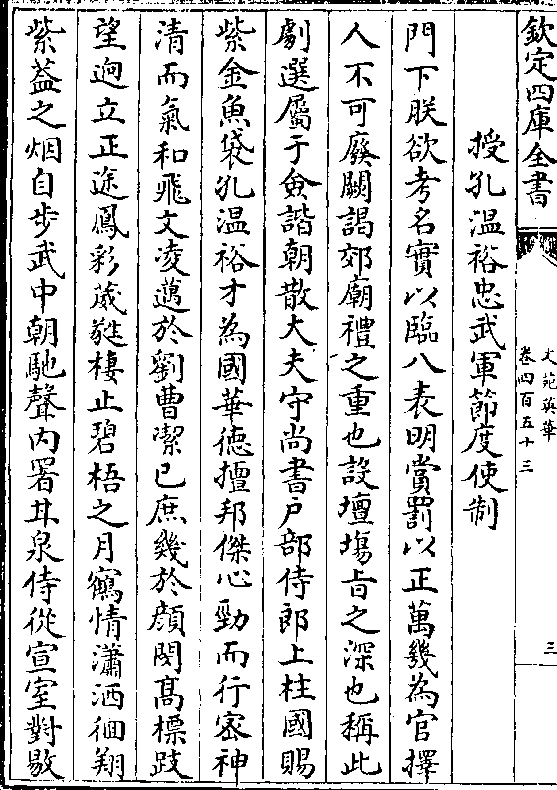 欽定四庫全書
文苑英華
卷四百五十三
三
授孔温裕忠武軍節度使制
門下朕欲考名實以臨八表明賞罰以正萬幾為官擇
人不可廢闕謁郊廟禮之重也設壇塲旨之深也稱此
劇選屬于僉諧朝散大夫守尚書户部侍郎上柱國賜
紫金魚袋孔温裕才為國華徳擅邦傑心勁而行宻神
清而氣和飛文凌邁於劉曹潔已庶幾於顔閔髙標跂
望逈立正途鳳彩葳蕤棲止碧梧之月鶴情瀟洒徊翔
紫葢之烟自步武中朝馳聲内署甘泉侍從宣室對敭